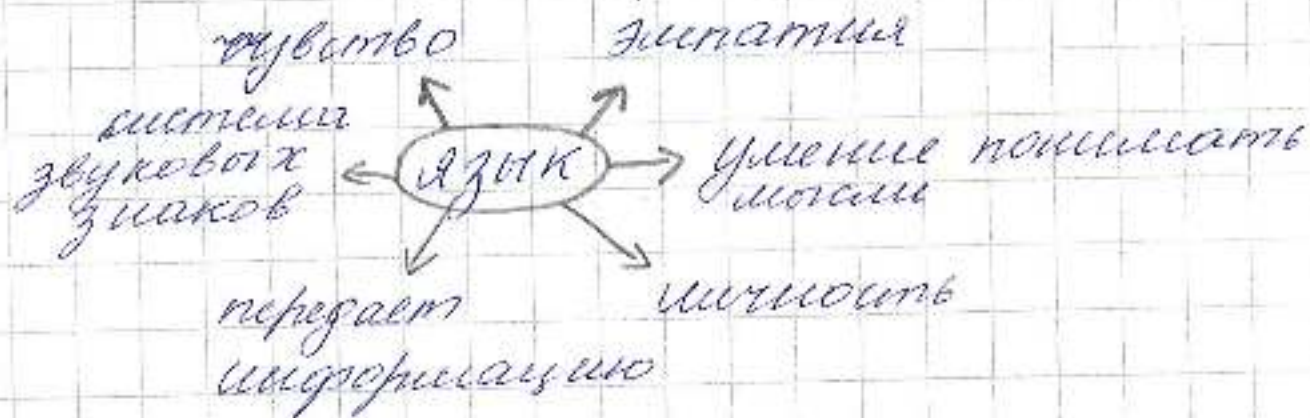 чувство
эмпатия
система
звуковых
знаков
язык
умение понимать
мысли
передает
информацию
личность